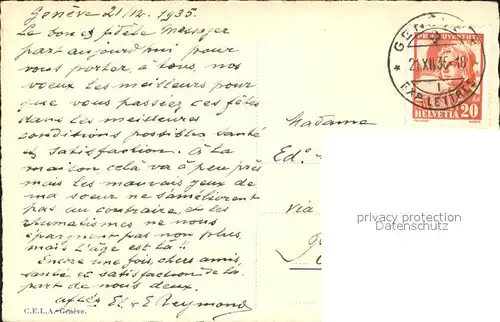 Genève 21/12. 1935.
Le bon et fidèle Messager
part aujourd'hui pour
vous porter à tous nos
voeux les meilleurs pour
que vous passiez ces fêtes
dans les meilleures
conditions possibles santé
et satisfaction. À la
maison cela va à peu près
mais les mauvais yeux de
ma soeur ne s'améliorent
pas au contraire, et les
rhumatismes ne nous
épargnent pas non plus,
mais l'âge est là !!
Encore une fois, chers amis,
santé et satisfaction de la
part de nous deux.
affte El. & E Reymond
C.E.L.A.-Genève.
Madame
Ed.
via
PRO JUVENTUTE
HELVETIA 20
GENÈVE
21.XII.35-18
1
EXP. LETTRES
privacy protection
Datenschutz